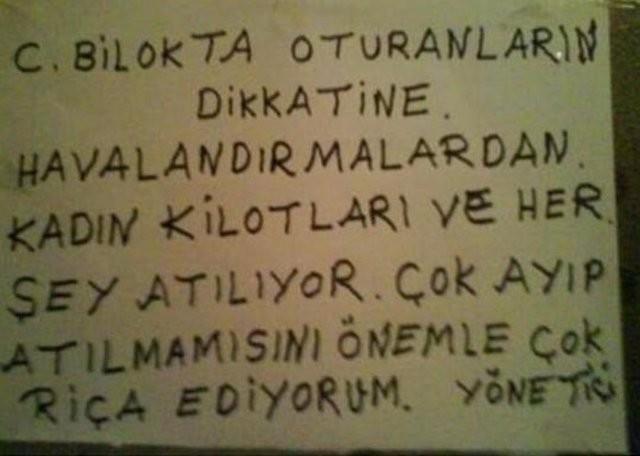 C. BİLOKTA OTURANLARIN
DİKKATİNE.
HAVALANDIRMALARDAN.
KADIN KİLOTLARI VE HER.
ŞEY ATILIYOR. ÇOK AYIP
ATILMAMISINI ÖNEMLE ÇOK
RİÇA EDİYORUM. YÖNETİCİ